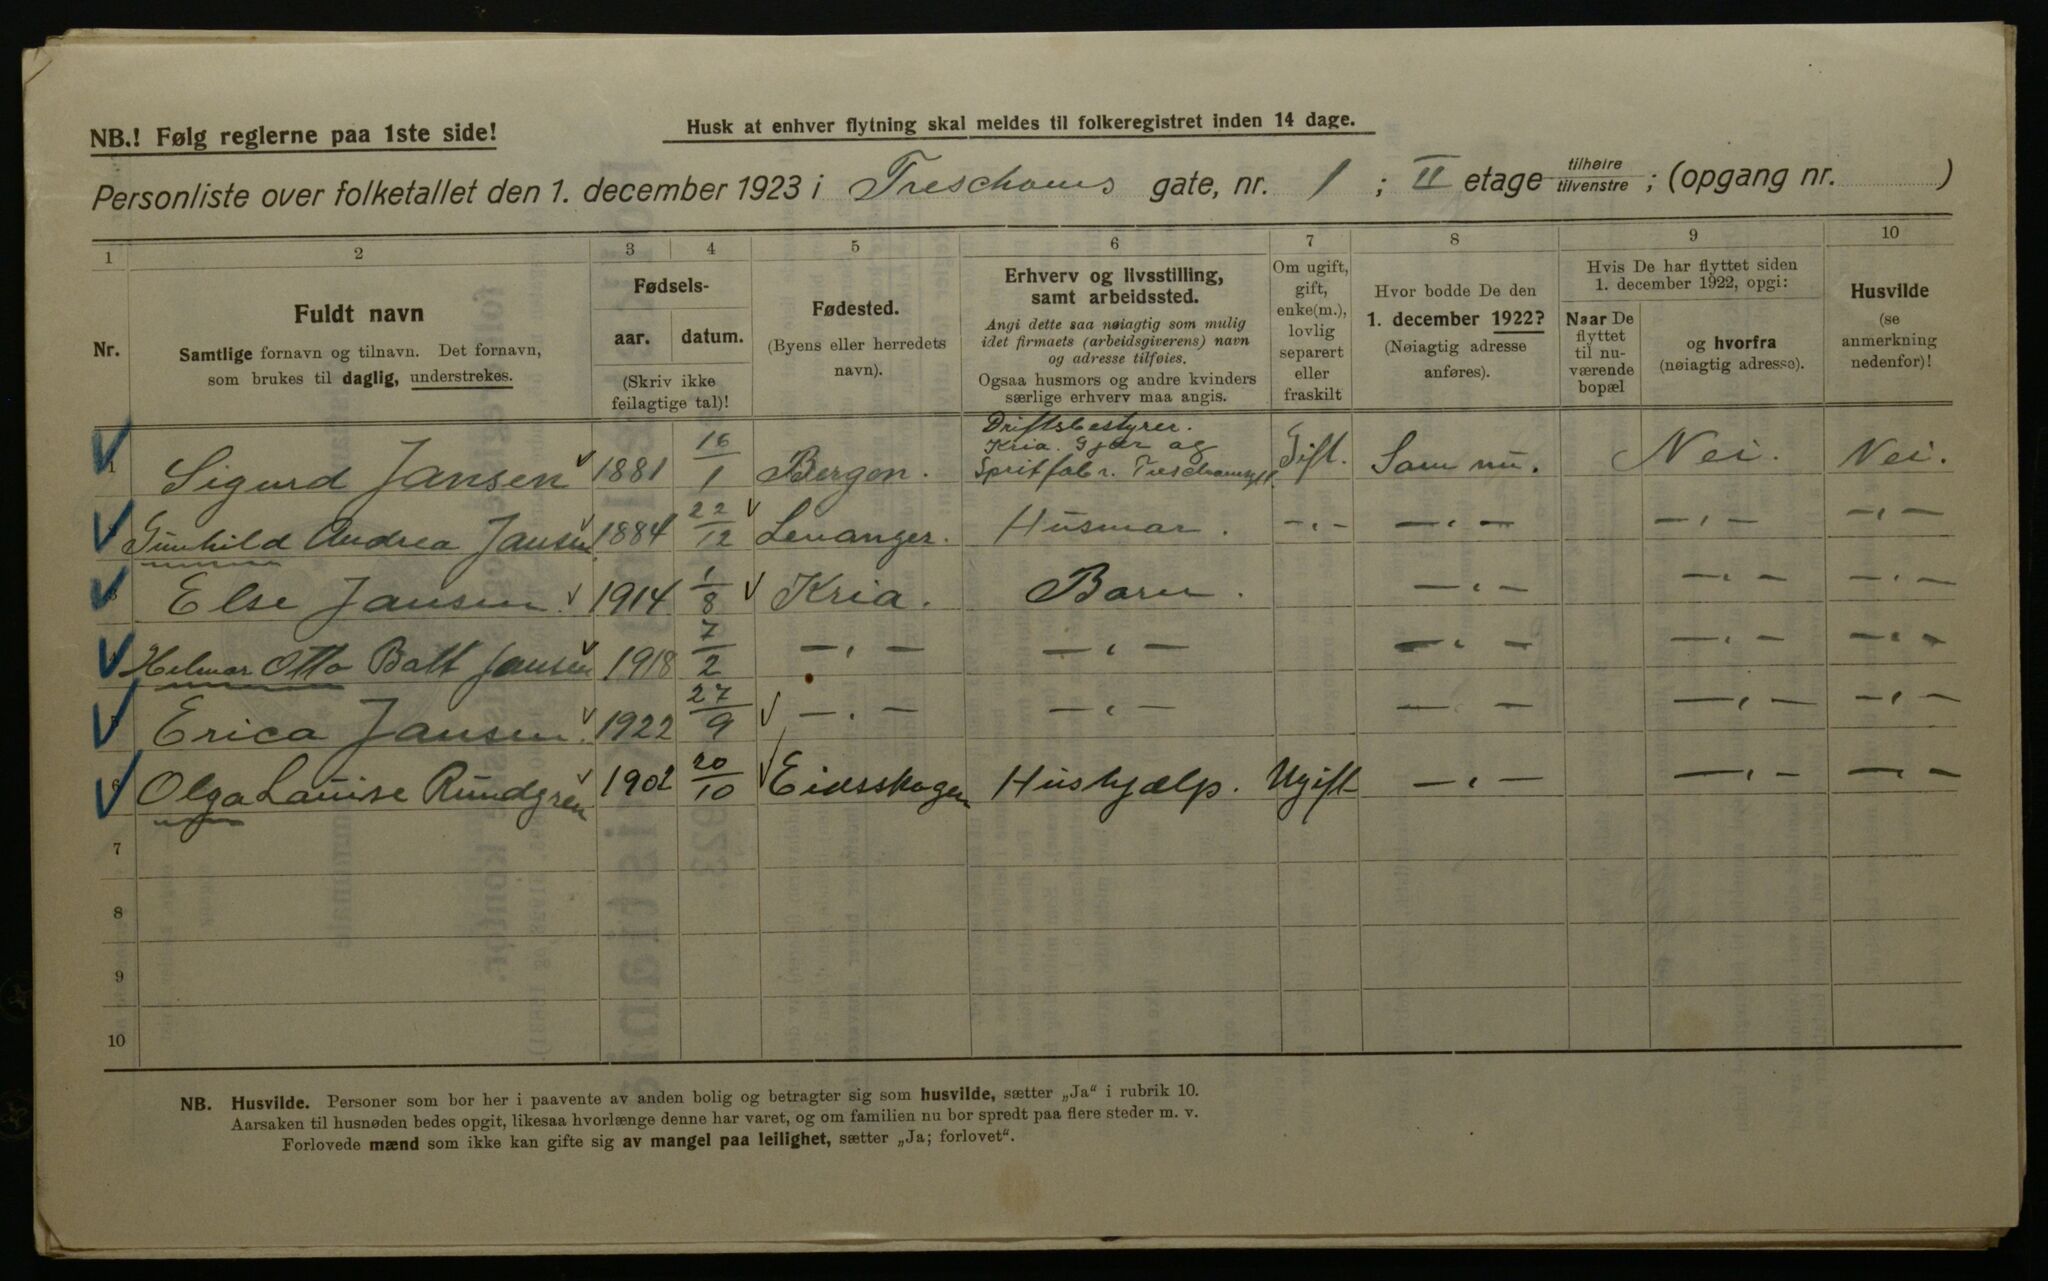 NB.! Følg reglerne paa 1ste side!
Husk at enhver flytning skal meldes til folkeregistret inden 14 dage.
Personliste over folketallet den 1. december 1923 i Treschows gate, nr. 1 ; II etage tilhøire tilvenstre ; (opgang nr. )
1 2 3 4 5 6 7 8 9 10
Nr.
Fuldt navn
Samtlige fornavn og tilnavn. Det fornavn,
som brukes til daglig, understrekes.
Fødsels-
aar. datum.
(Skriv ikke
feilagtige tal)!
Fødested.
(Byens eller herredets
navn).
Erhverv og livsstilling,
samt arbeidssted.
Angi dette saa nøiagtig som mulig
idet firmaets (arbeidsgiverens) navn
og adresse tilføies.
Ogsaa husmors og andre kvinders
særlige erhverv maa angis.
Om ugift,
gift,
enke(m.),
lovlig
separert
eller
fraskilt
Hvor bodde De den
1. december 1922?
(Nøiagtig adresse
anføres).
Hvis De har flyttet siden
1. december 1922, opgi:
Naar De
flyttet
til nu-
værende
bopæl
og hvorfra
(nøiagtig adresse).
Husvilde
(se
anmerkning
nedenfor)!
1 Sigurd Jansen 1881 16/1 Bergen. Driftsbestyrer. Kria. Gjær og Spritfabr. Treschowsgt. Gift. Som nu. Nei. Nei.
Gunhild Andrea Jansen 1884 22/12 Levanger. Husmor. -"- -"- -"- -"-
Else Jansen. 1914 1/8 Kria. Barn. -"- -"- -"-
Helmar Otto Batt Jansen 1918 7/2 -"- -"- -"- -"- -"-
5 Erica Jansen. 1922 27/9 -"- -"- -"- -"- -"-
6 Olga Louise Rundgren 1902 20/10 Eidsskogen Hushjælp. Ugift -"- -"- -"-
7
8
9
10
NB. Husvilde. Personer som bor her i paavente av anden bolig og betragter sig som husvilde, sætter „Ja“ i rubrik 10.
Aarsaken til husnøden bedes opgit, likesaa hvorlænge denne har varet, og om familien nu bor spredt paa flere steder m. v.
Forlovede mænd som ikke kan gifte sig av mangel paa leilighet, sætter „Ja; forlovet“.